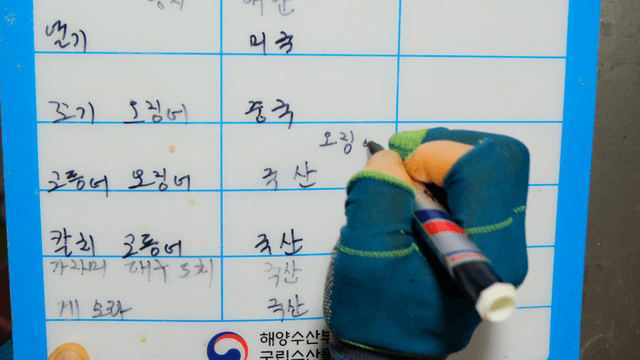 멸기 미국
조기 오징어 중국
오징
고등어 오징어 국산
갈치 고등어 국산
가자미 대구 도치 국산
게 소라 국산
해양수산부
국립수산